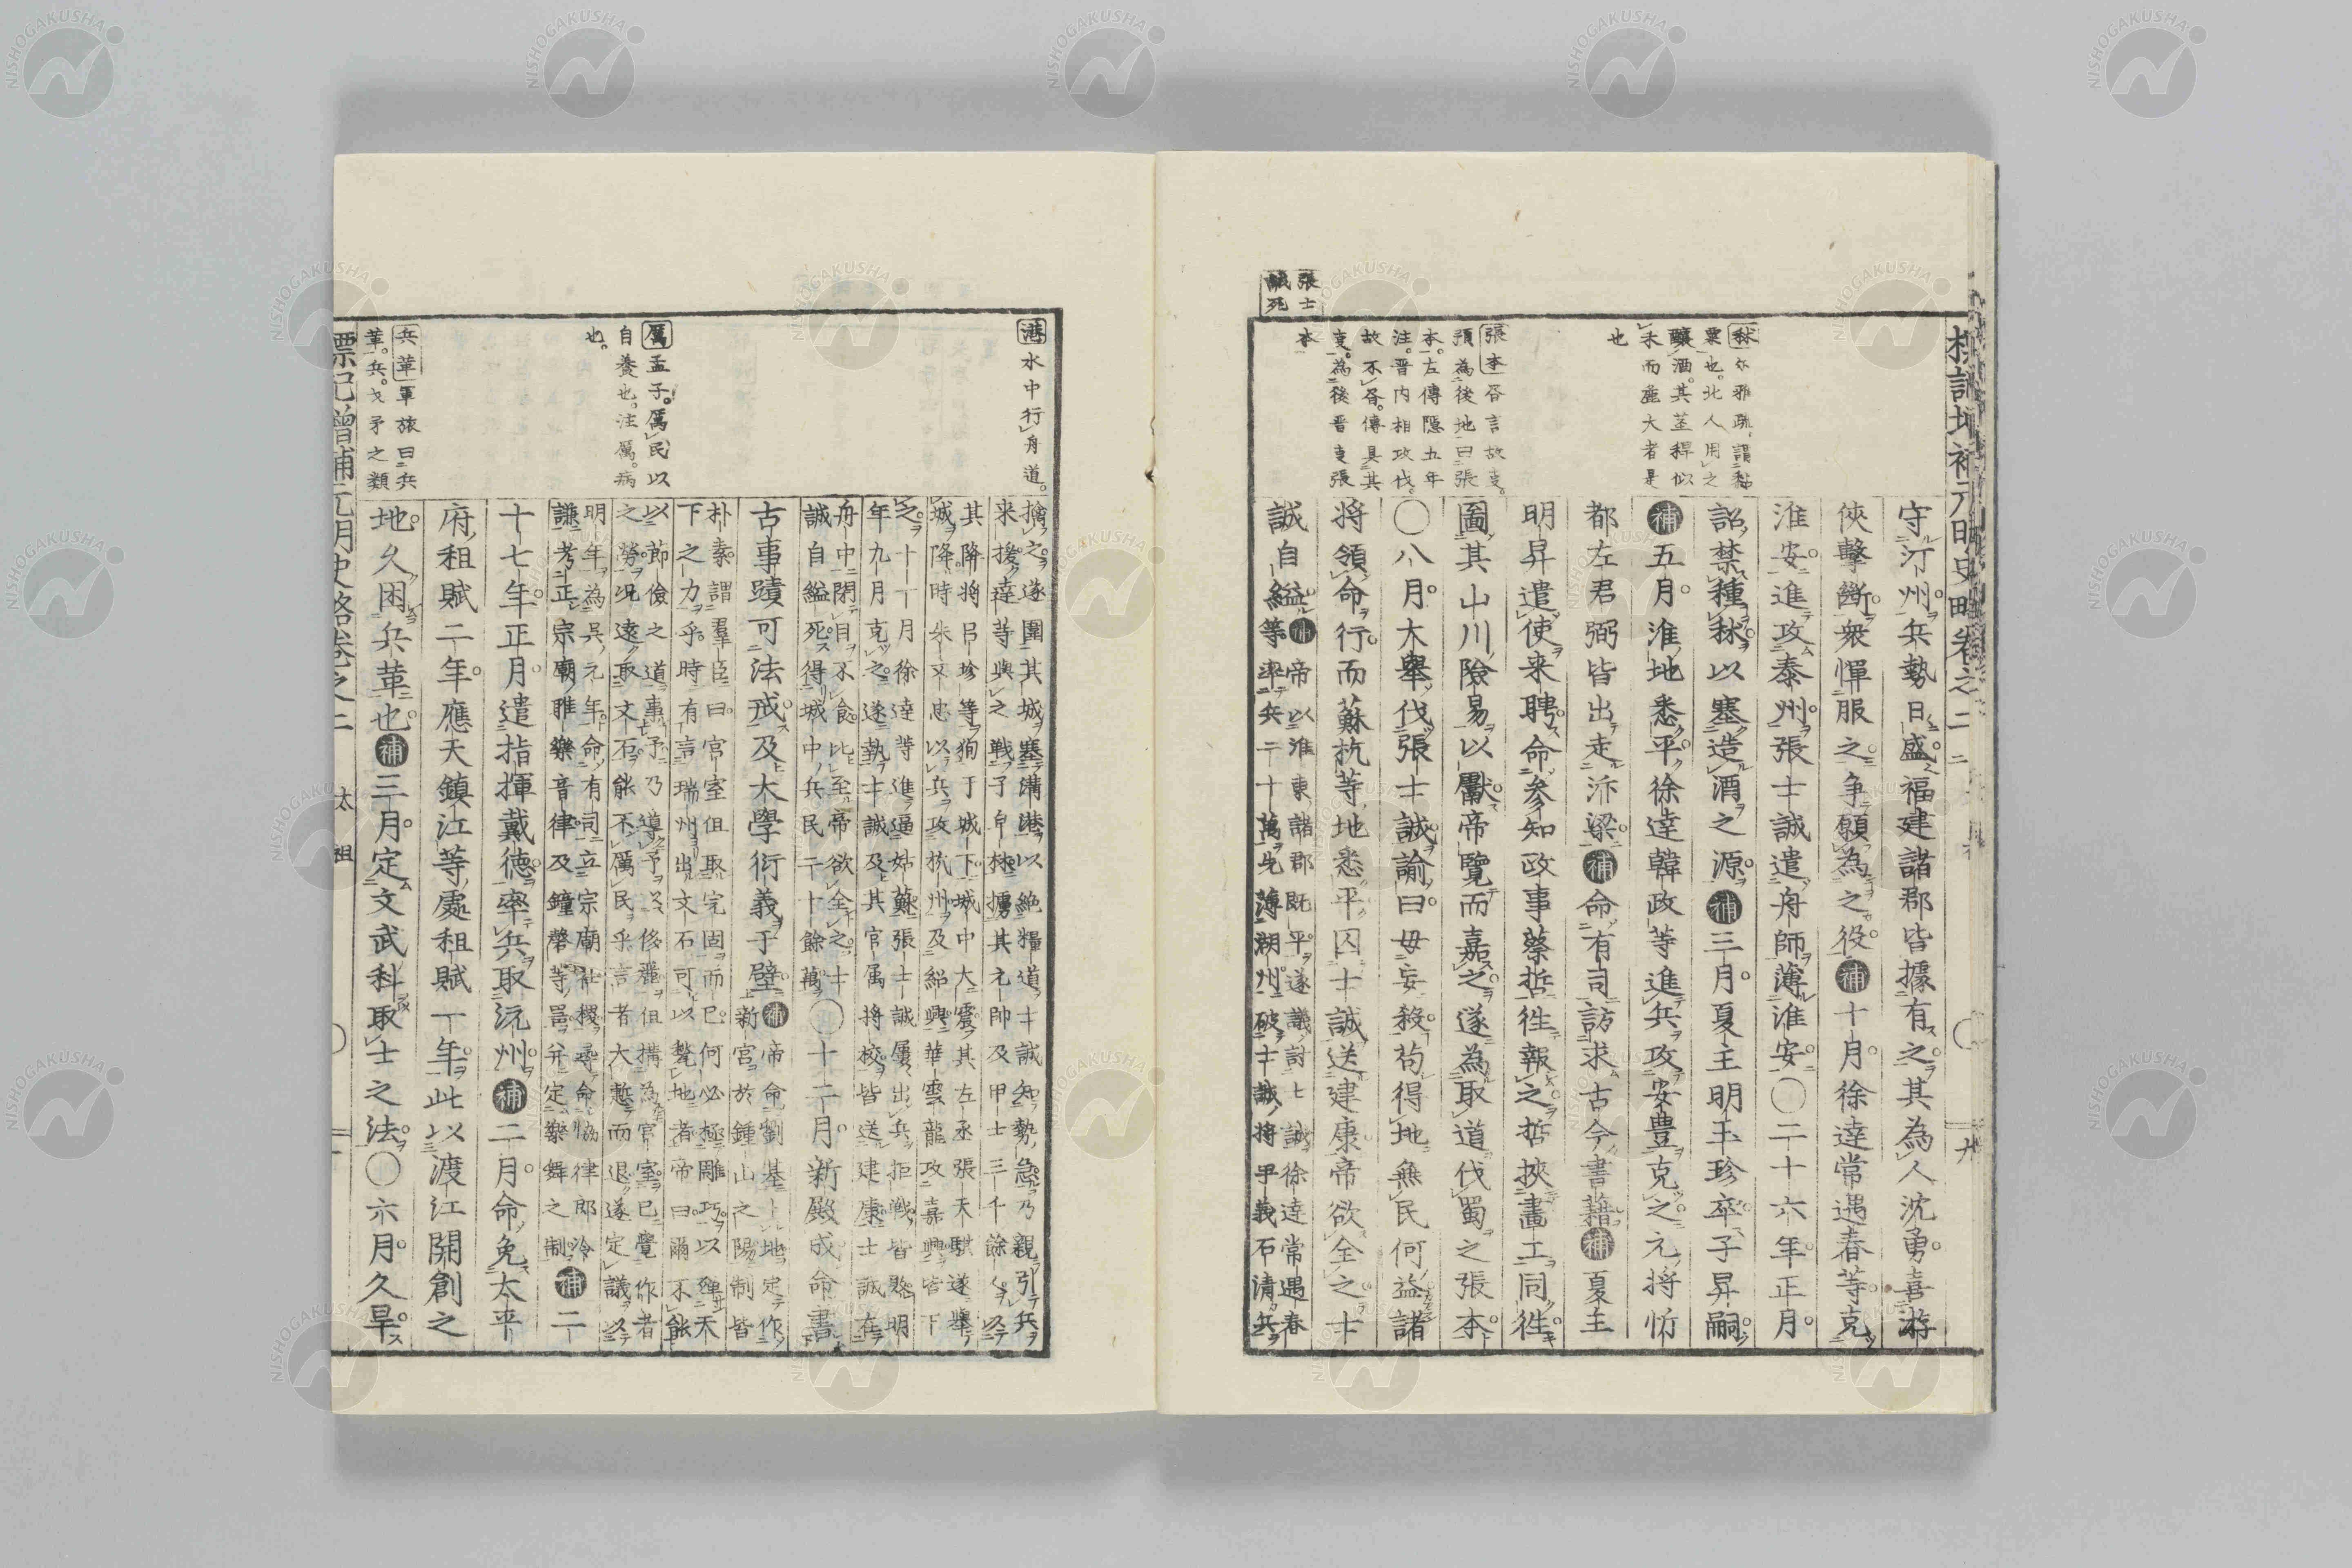 標記増補元明史略卷之二
張士
誠死
秫尓雅疏謂黏
粟也北人用之
釀酒其莖稈似
禾而麁大者是
也
張本昏言故支
預為後地曰張
本左傳隱五年
注晋内相攻伐
故不昏傳具其
支為後晋支張
本
守汀州兵勢日盛福建諸郡皆據有之其為人沈勇喜游
俠擊斷衆憚服之争願為之役補十月徐達常遇春等克
淮安進攻泰州張士誠遣舟師薄淮安〇二十六年正月
詔禁種秫以塞造酒之源補三月夏主明玉珍卒子昇嗣
補五月淮地悉平徐達韓政等進兵攻安豊克之元將忻
都左君弼皆出走汴梁補命有司訪求古今書藉補夏主
明昇遣使来聘命參知政事蔡哲徃報之哲挾畫工同徃
圖其山川險易以獻帝覽而嘉之遂為取道伐蜀之張本
〇八月大舉伐張士誠諭曰毋妄殺苟得地無民何益諸
將領命行而蘇杭等地悉平囚士誠送建康帝欲全之士
誠自縊補帝以淮東諸郡既平遂議討士誠徐達常遇春
等率兵二十萬先薄湖州破士誠將尹義石清兵
港水中行舟道
厲孟子厲民以
自養也注厲病
也
兵革軍旅曰兵
革兵戈矛之類
擒之遂圍其城塞溝港以絶糧道士誠知勢急乃親引兵
来援達等與之戰于皂林擄其元帥及甲士三千餘人以
其降將吕珍等狥于城下城中大震其左丞張天騏遂舉
城降時朱文忠以兵攻杭州及紹興華雲龍攻嘉興皆下
之十一月徐達等進逼姑蘇張士誠屢出兵拒戰皆敗明
年九月克之遂執士誠及其官属將校皆送建康士誠在
舟中閉目不食比至帝欲全之士
誠自縊死得城中兵民二十餘萬〇十二月新殿成命書
古事蹟可法戒及大學衍義于壁補帝命劉基卜地定作
新宮於鍾山之陽制皆
朴素謂羣臣曰宮室但取完固而已何必極雕巧以殫天
下之力乎時有言瑞州出文石可以甃地者帝曰爾不能
以節儉之道事予乃導予以侈麗但搆為宮室已覺作者
之勞况遠取文石能不厲民乎言者大慙而退遂定議以
明年為呉元年命有司立宗廟社稷尋命協律郎冷
謙考正宗廟雅樂音律及鐘磬等器并定樂舞之制補二
十七年正月遣指揮戴徳率兵取沅州補二月命免太平
府租賦二年應天鎮江等處租賦一年此以渡江開創之
地久困兵革也補三月定文武科取士之法〇六月久旱
標記増補元明史略卷之二　太祖